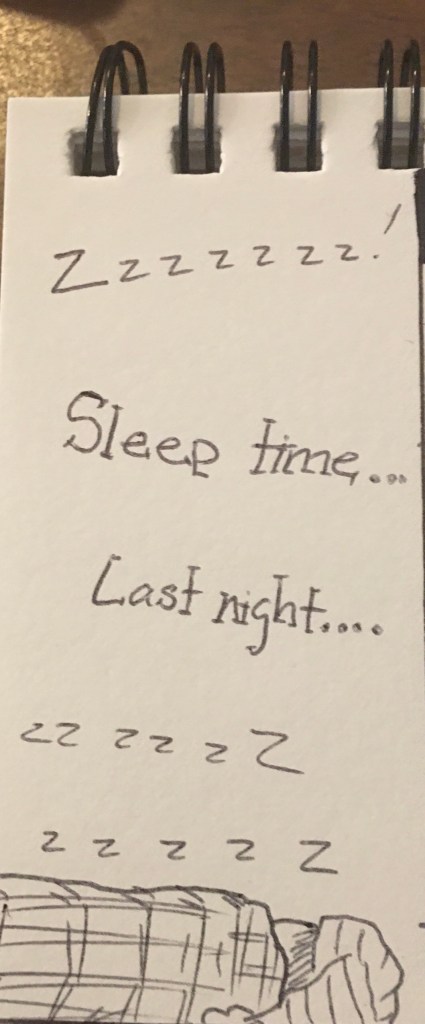 Zzzzzzz!
Sleep time...
Last night....
zz zz z Z
z z z z Z